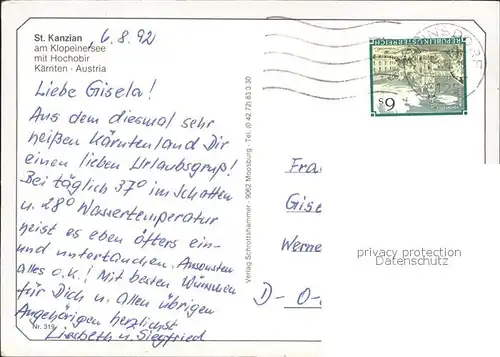 St. Kanzian
am Klopeinersee
mit Hochobir
Kärnten - Austria
6.8.92
Liebe Gisela!
Aus dem diesmal sehr
heißen Kärntenland Dir
einen lieben Urlaubsgruß!
Bei täglich 37° im Schatten
u. 28° Wassertemperatur
heist es eben öfters ein-
und untertauchen. Ansonsten
alles o.k.! Mit besten Wünschen
für Dich u. allen übrigen
Angehörigen herzlichst
Liesbeth u. Siegfried
Nr. 319
Verlag Schrottshammer - 9062 Moosburg - Tel. (0 42 72) 83 3 30
REPUBLIK ÖSTERREICH
S 6
Frau
Gise
Werne
D - O -
privacy protection
Datenschutz